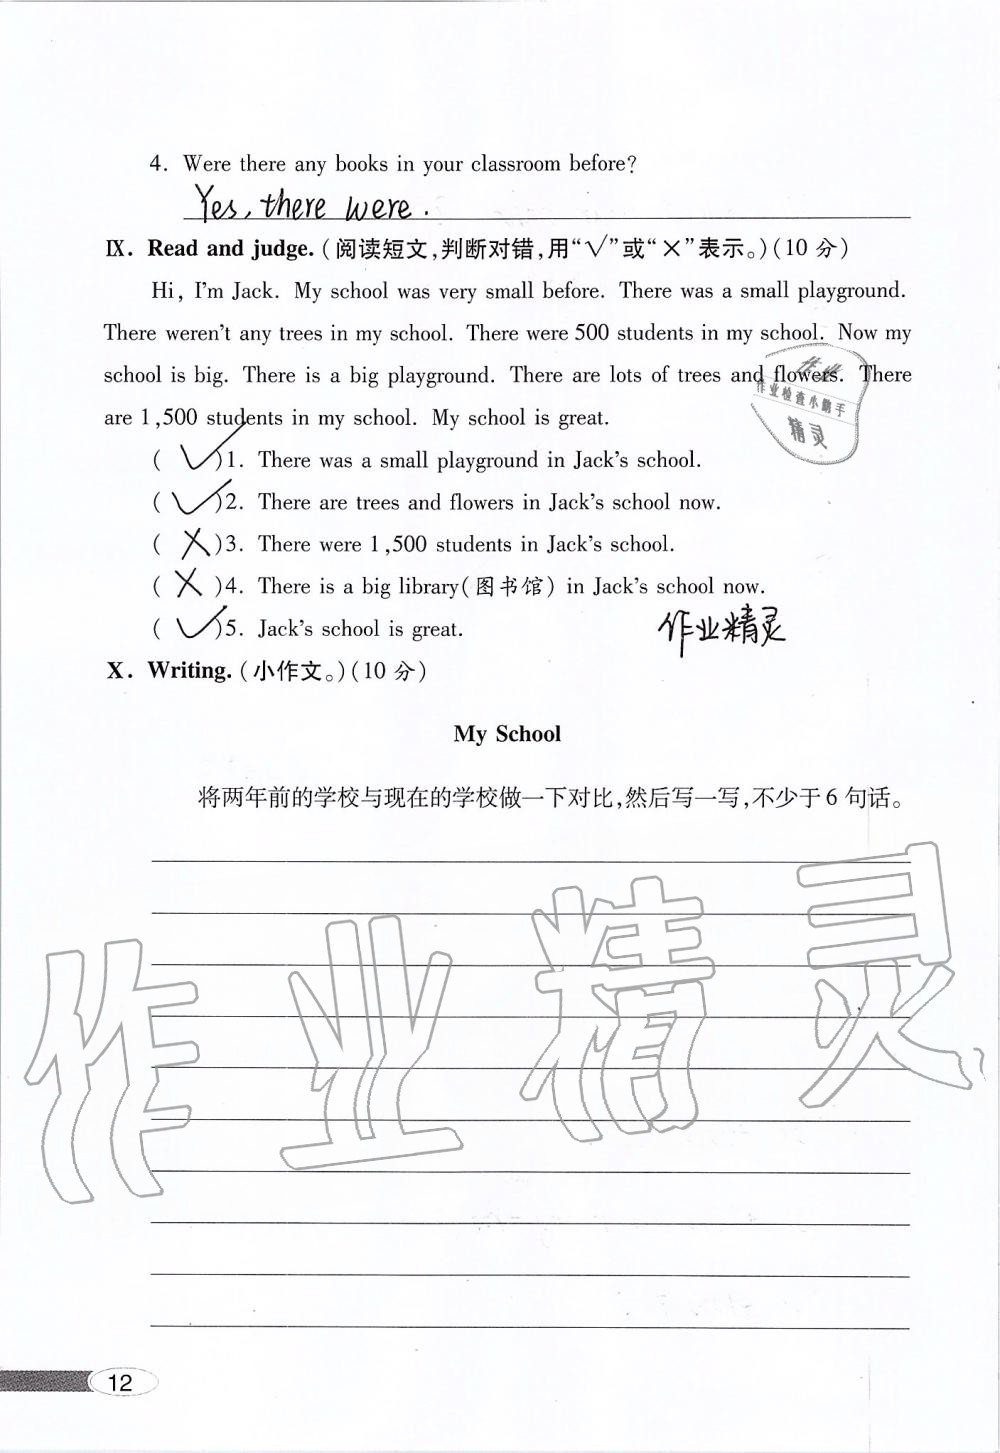 4. Were there any books in your classroom before?
Yes, there were.
Ⅸ. Read and judge. (阅读短文,判断对错,用“√”或“×”表示。)(10 分)
Hi, I'm Jack. My school was very small before. There was a small playground.
There weren't any trees in my school. There were 500 students in my school. Now my
school is big. There is a big playground. There are lots of trees and flowers. There
are 1,500 students in my school. My school is great.
作业
作业检查小助手
精灵
( √ )1. There was a small playground in Jack's school.
( √ )2. There are trees and flowers in Jack's school now.
( × )3. There were 1,500 students in Jack's school.
( × )4. There is a big library(图书馆) in Jack's school now.
( √ )5. Jack's school is great.
作业精灵
Ⅹ. Writing. (小作文。)(10 分)
My School
将两年前的学校与现在的学校做一下对比,然后写一写,不少于 6 句话。
作业精灵
12